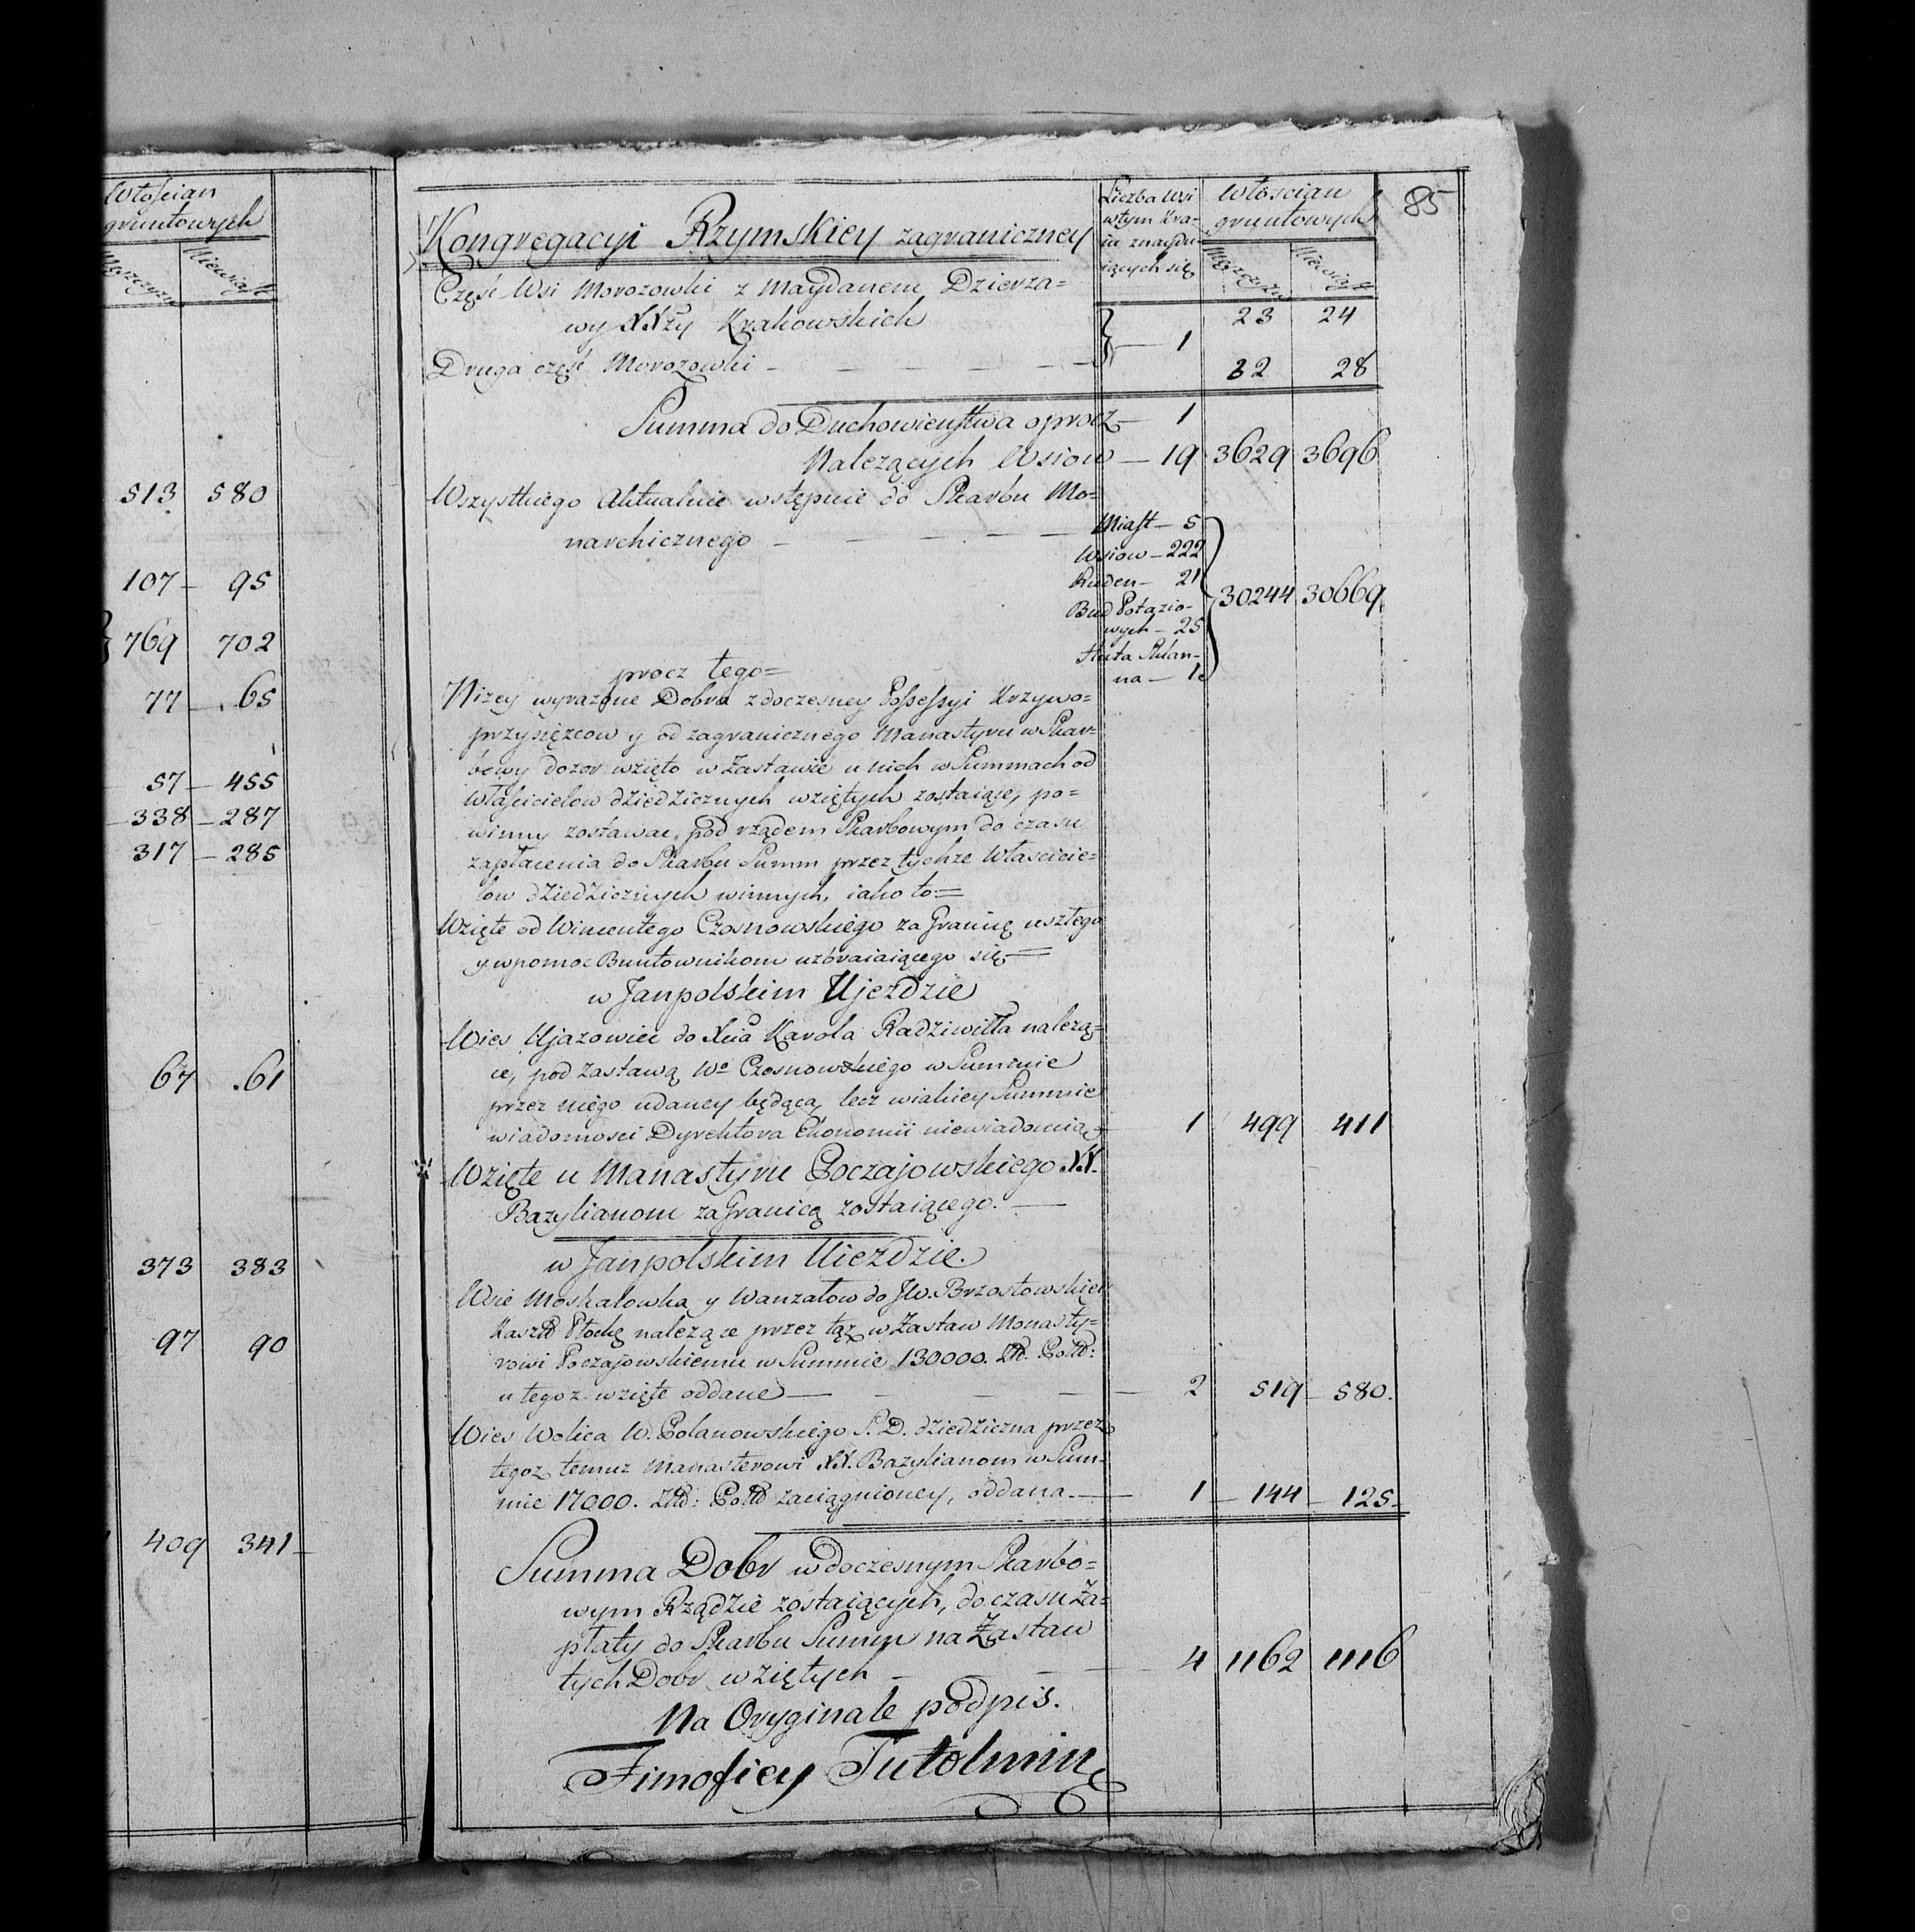 Włościan
gruntowych
Mężczyzn Niewiast
513 580
107 – 95
769 702
77 – 65
57 – 455
338 – 287
317 – 285
67 61
373 383
97 90
409 341 –
85
Liczba Wsi
w tym Kra=
iu znaydu=
iących się
Włościan
gruntowych
Mężczyzn Niewiast
Kongregacyi Rzymskiey zagraniczney
Część Wsi Morozowki z Maydanem Dzierża=
wy XXży Krakowskich 23 24
Druga część Morozowki – – – – – 1 32 28
Summa do Duchowieństwa oprocz – 1
Należących Wsiow – 19 3629 3696
Wszystkiego Aktualnie wstępuie do Skarbu Mo=
narchicznego – – – – –
Miast – 5
Wsiow – 222
Ruden – 21
Bud Potażio-
wych – 25
Huta Szklan-
na – 1
30244 30669
procz tego=
Niżey wyrażone Dobra z doczesney Possessyi Krzywo=
przysięzcow y od zagranicznego Manastyru w Skar=
bowy dozor wzięto w Zastawie u nich w Summach od
Właścicielow dziedzicznych wziętych zostaiące, po=
winny zostawać pod rządem Skarbowym do czasu
zapłacenia do Skarbu Summ przez tychże Właścicie=
low dziedzicznych winnych, iako to:=
Wzięte od Wincentego Czosnowskiego za Granicę uszłego
y w pomoc Buntownikom uzbraiaiącego się=
w Janpolskim Ujezdzie
Wieś Ujazowiec do Xcia Karola Radziwiłła należą=
ce, pod zastawą Wo Czosnowskiego w Summie
przez niego udaney będąca, lecz w iakiey Summie
wiadomości Dyrektora Ekonomii niewiadomia – 1 499 411
Wzięte u Manastyru Poczajowskiego XX.
Bazylianom za Granicą zostaiącego. –
w Janpolskim Uiezdzie.
Wsie Moskalowka y Wanzałow do JW. Brzostowskiey
Kaszt Płocką należące przez tąż w Zastaw Monasty=
rowi Poczajowskiemu w Summie 130000. Złł. Poll:
u tegoż wzięte oddane – – – – 2 519 – 580.
Wieś Wolica W. Polanowskiego S. D. dziedziczna przez
tegoż temuż Manasterowi XX. Bazylianom w Sum=
mie 17000. Złł: Poll zaciągnioney, oddana. – 1 – 144 – 125 –
Summa Dobr w doczesnym Skarbo=
wym Rządzie zostaiących, do czasu Za=
płaty do Skarbu Summ na Zastaw
tych Dobr wziętych – – – 4 1162 1116
Na Oryginale podpis.
Timofiey Tutolmin